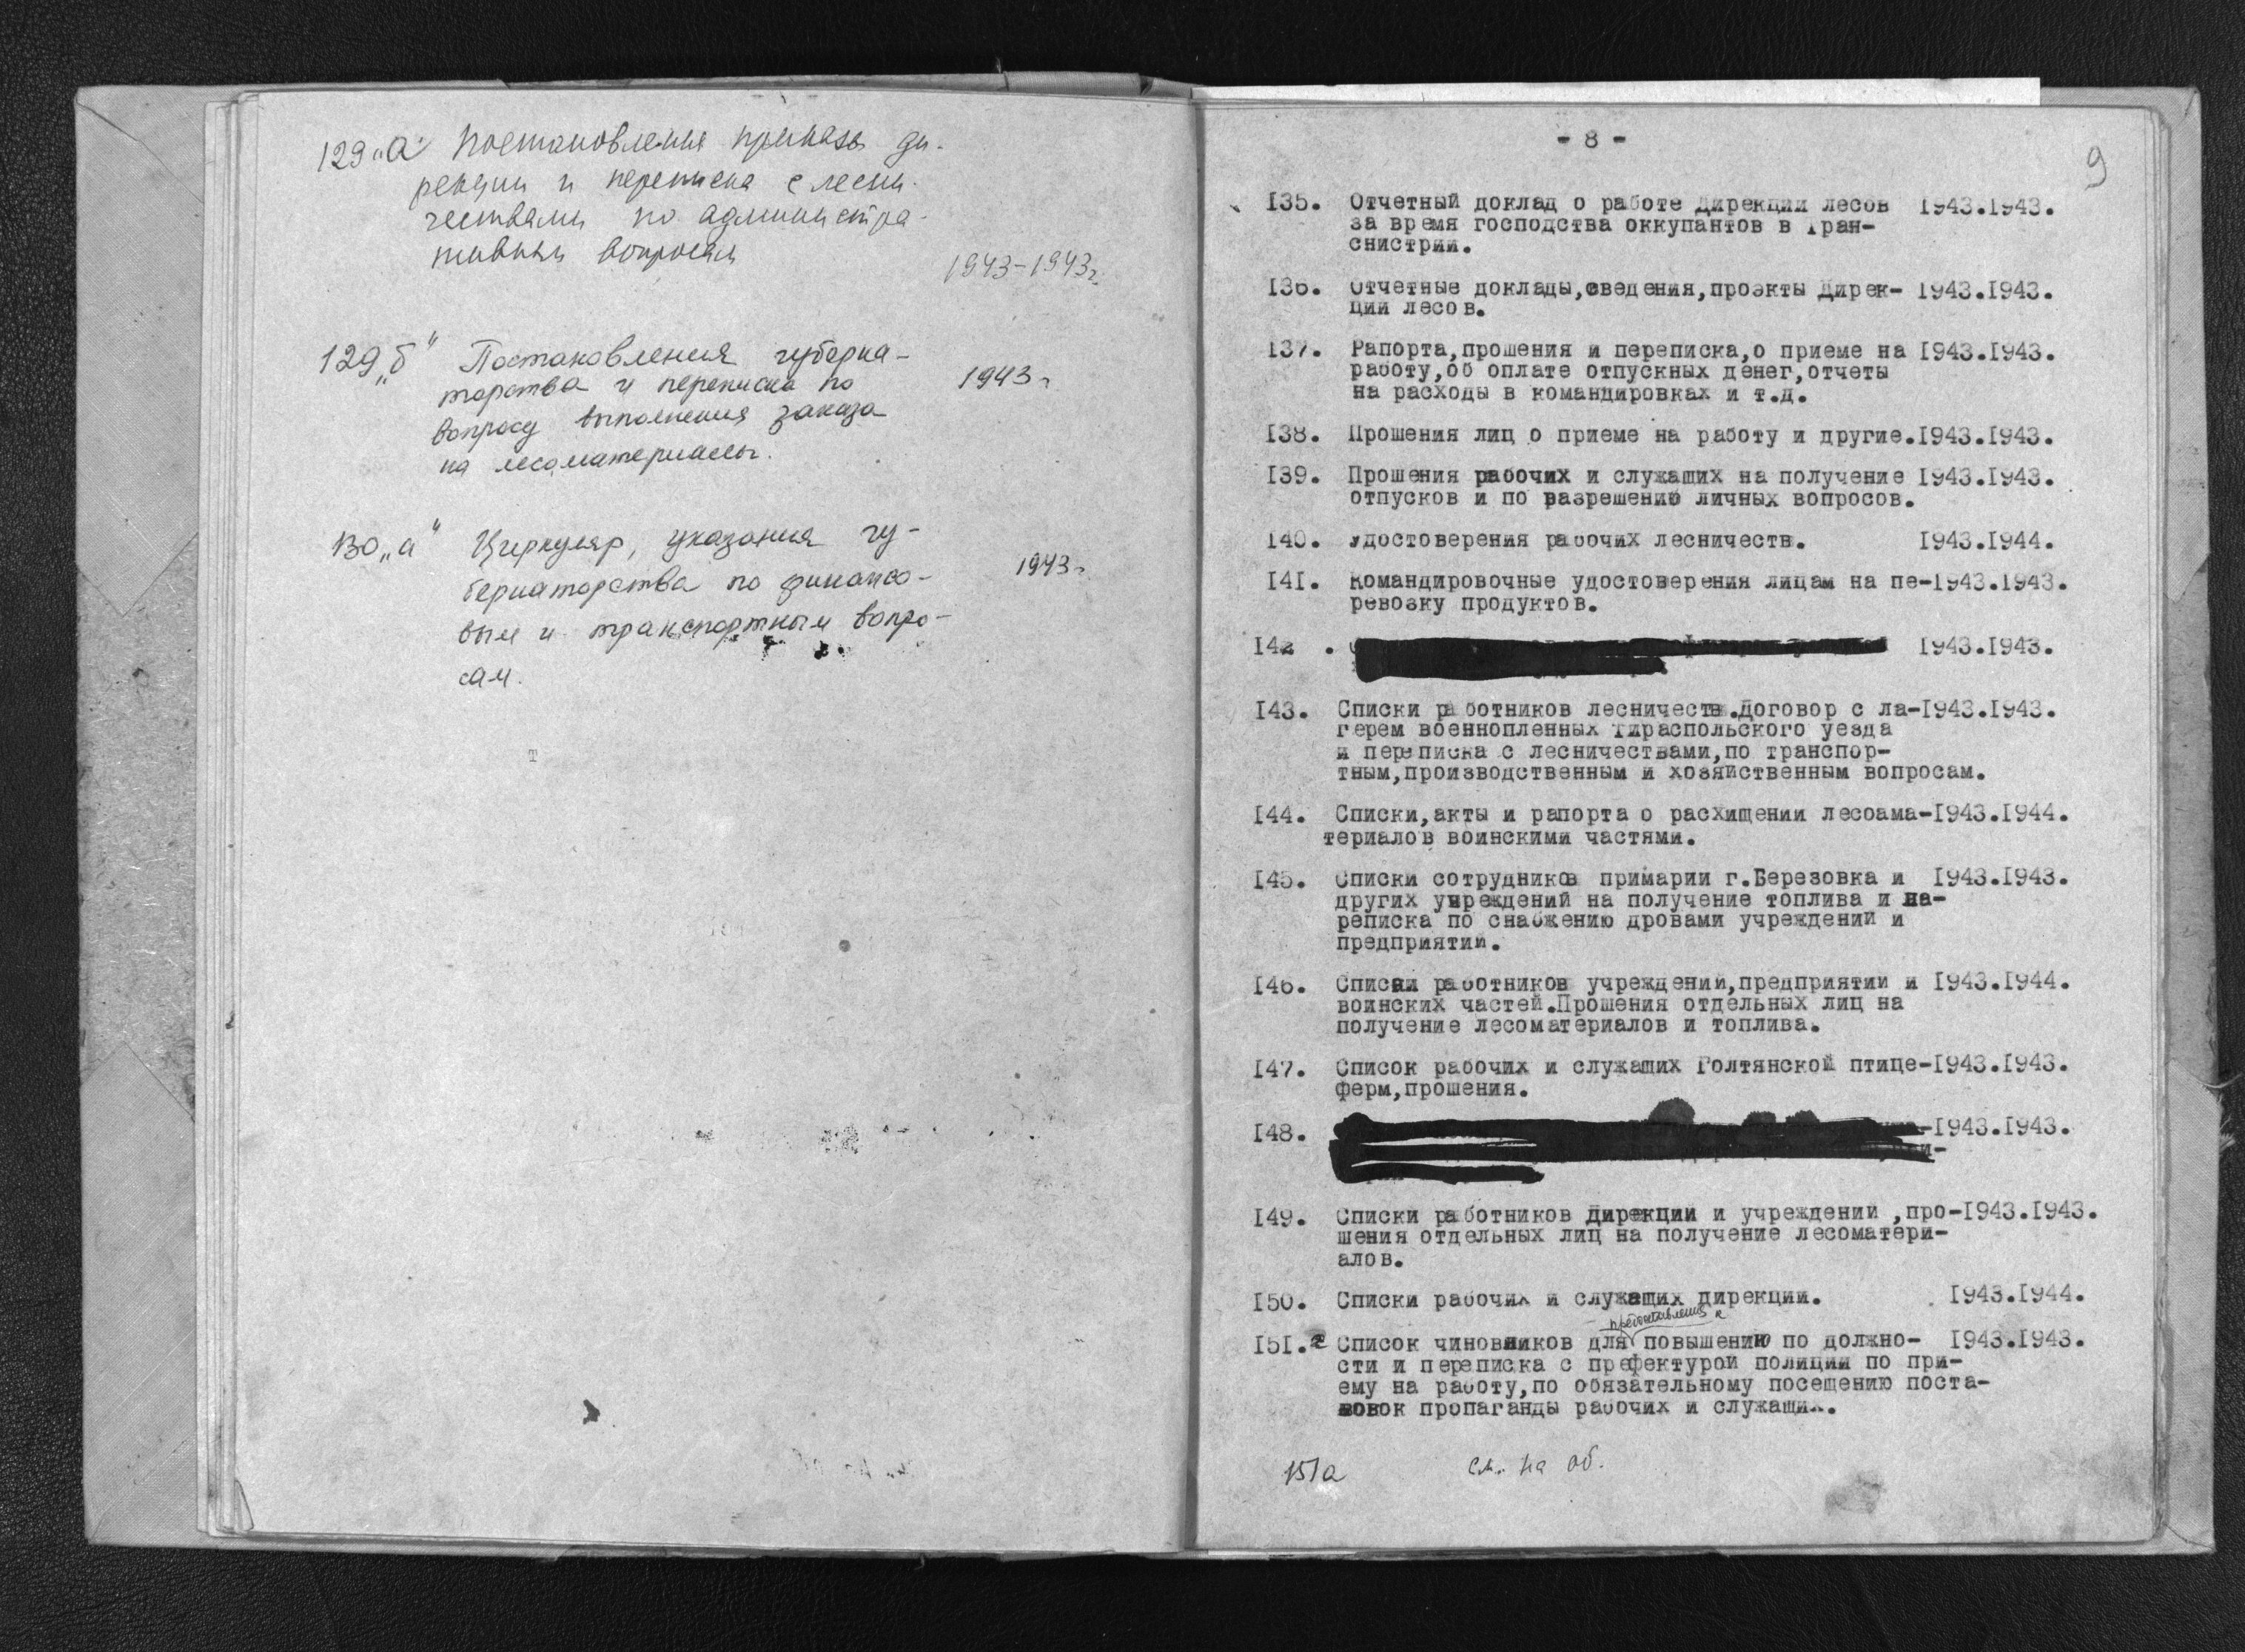 129 „а" Постановления приказы ди-
рекции и переписка с лесни-
чествами по администра-
тивным вопросам
1943-1943г.
129 „б" Постановления губерна-
торства и переписка по
1943 г
вопросу выполнения заказа
на лесоматериалы.
130 „а" Циркуляр, указания гу-
бернаторства по финансо-
1943 г
вым и транспортным вопро-
сам.
- 8 -
9
135. Отчетный доклад о работе Дирекции лесов 1943.1943.
за время господства оккупантов в Тран-
снистрии.
136. Отчетные доклады,сведения,проэкты Дирек- 1943.1943.
ции лесов.
137. Рапорта,прошения и переписка,о приеме на 1943.1943.
работу,об оплате отпускных денег,отчеты
на расходы в командировках и т.д.
138. Прошения лиц о приеме на работу и другие.1943.1943.
139. Прошения рабочих и служащих на получение 1943.1943.
отпусков и по разрешению личных вопросов.
140. Удостоверения рабочих лесничеств. 1943.1944.
141. Командировочные удостоверения лицам на пе-1943.1943.
ревозку продуктов.
142 . 1943.1943.
143. Списки работников лесничеств.Договор с ла-1943.1943.
герем военнопленных Тираспольского уезда
и переписка с лесничествами,по транспор-
тным,производственным и хозяйственным вопросам.
144. Списки,акты и рапорта о расхищении лесоама-1943.1944.
териалов воинскими частями.
145. Списки сотрудников примарии г.Березовка и 1943.1943.
других учреждений на получение топлива и па-
реписка по снабжению дровами учреждений и
предприятий.
146. Списки работников учреждений,предприятии и 1943.1944.
воинских частей.Прошения отдельных лиц на
получение лесоматериалов и топлива.
147. Список рабочих и служащих Голтянской птице-1943.1943.
ферм,прошения.
148. -1943.1943.
149. Списки работников дирекции и учреждении ,про-1943.1943.
шения отдельных лиц на получение лесоматери-
алов.
150. Списки рабочих и служащих дирекции. 1943.1944.
представления к
151. Список чиновников для повышению по должно- 1943.1943.
сти и переписка с префектурой полиции по при-
ему на работу,по обязательному посещению поста-
новок пропаганды рабочих и служащих.
151а см. на об.